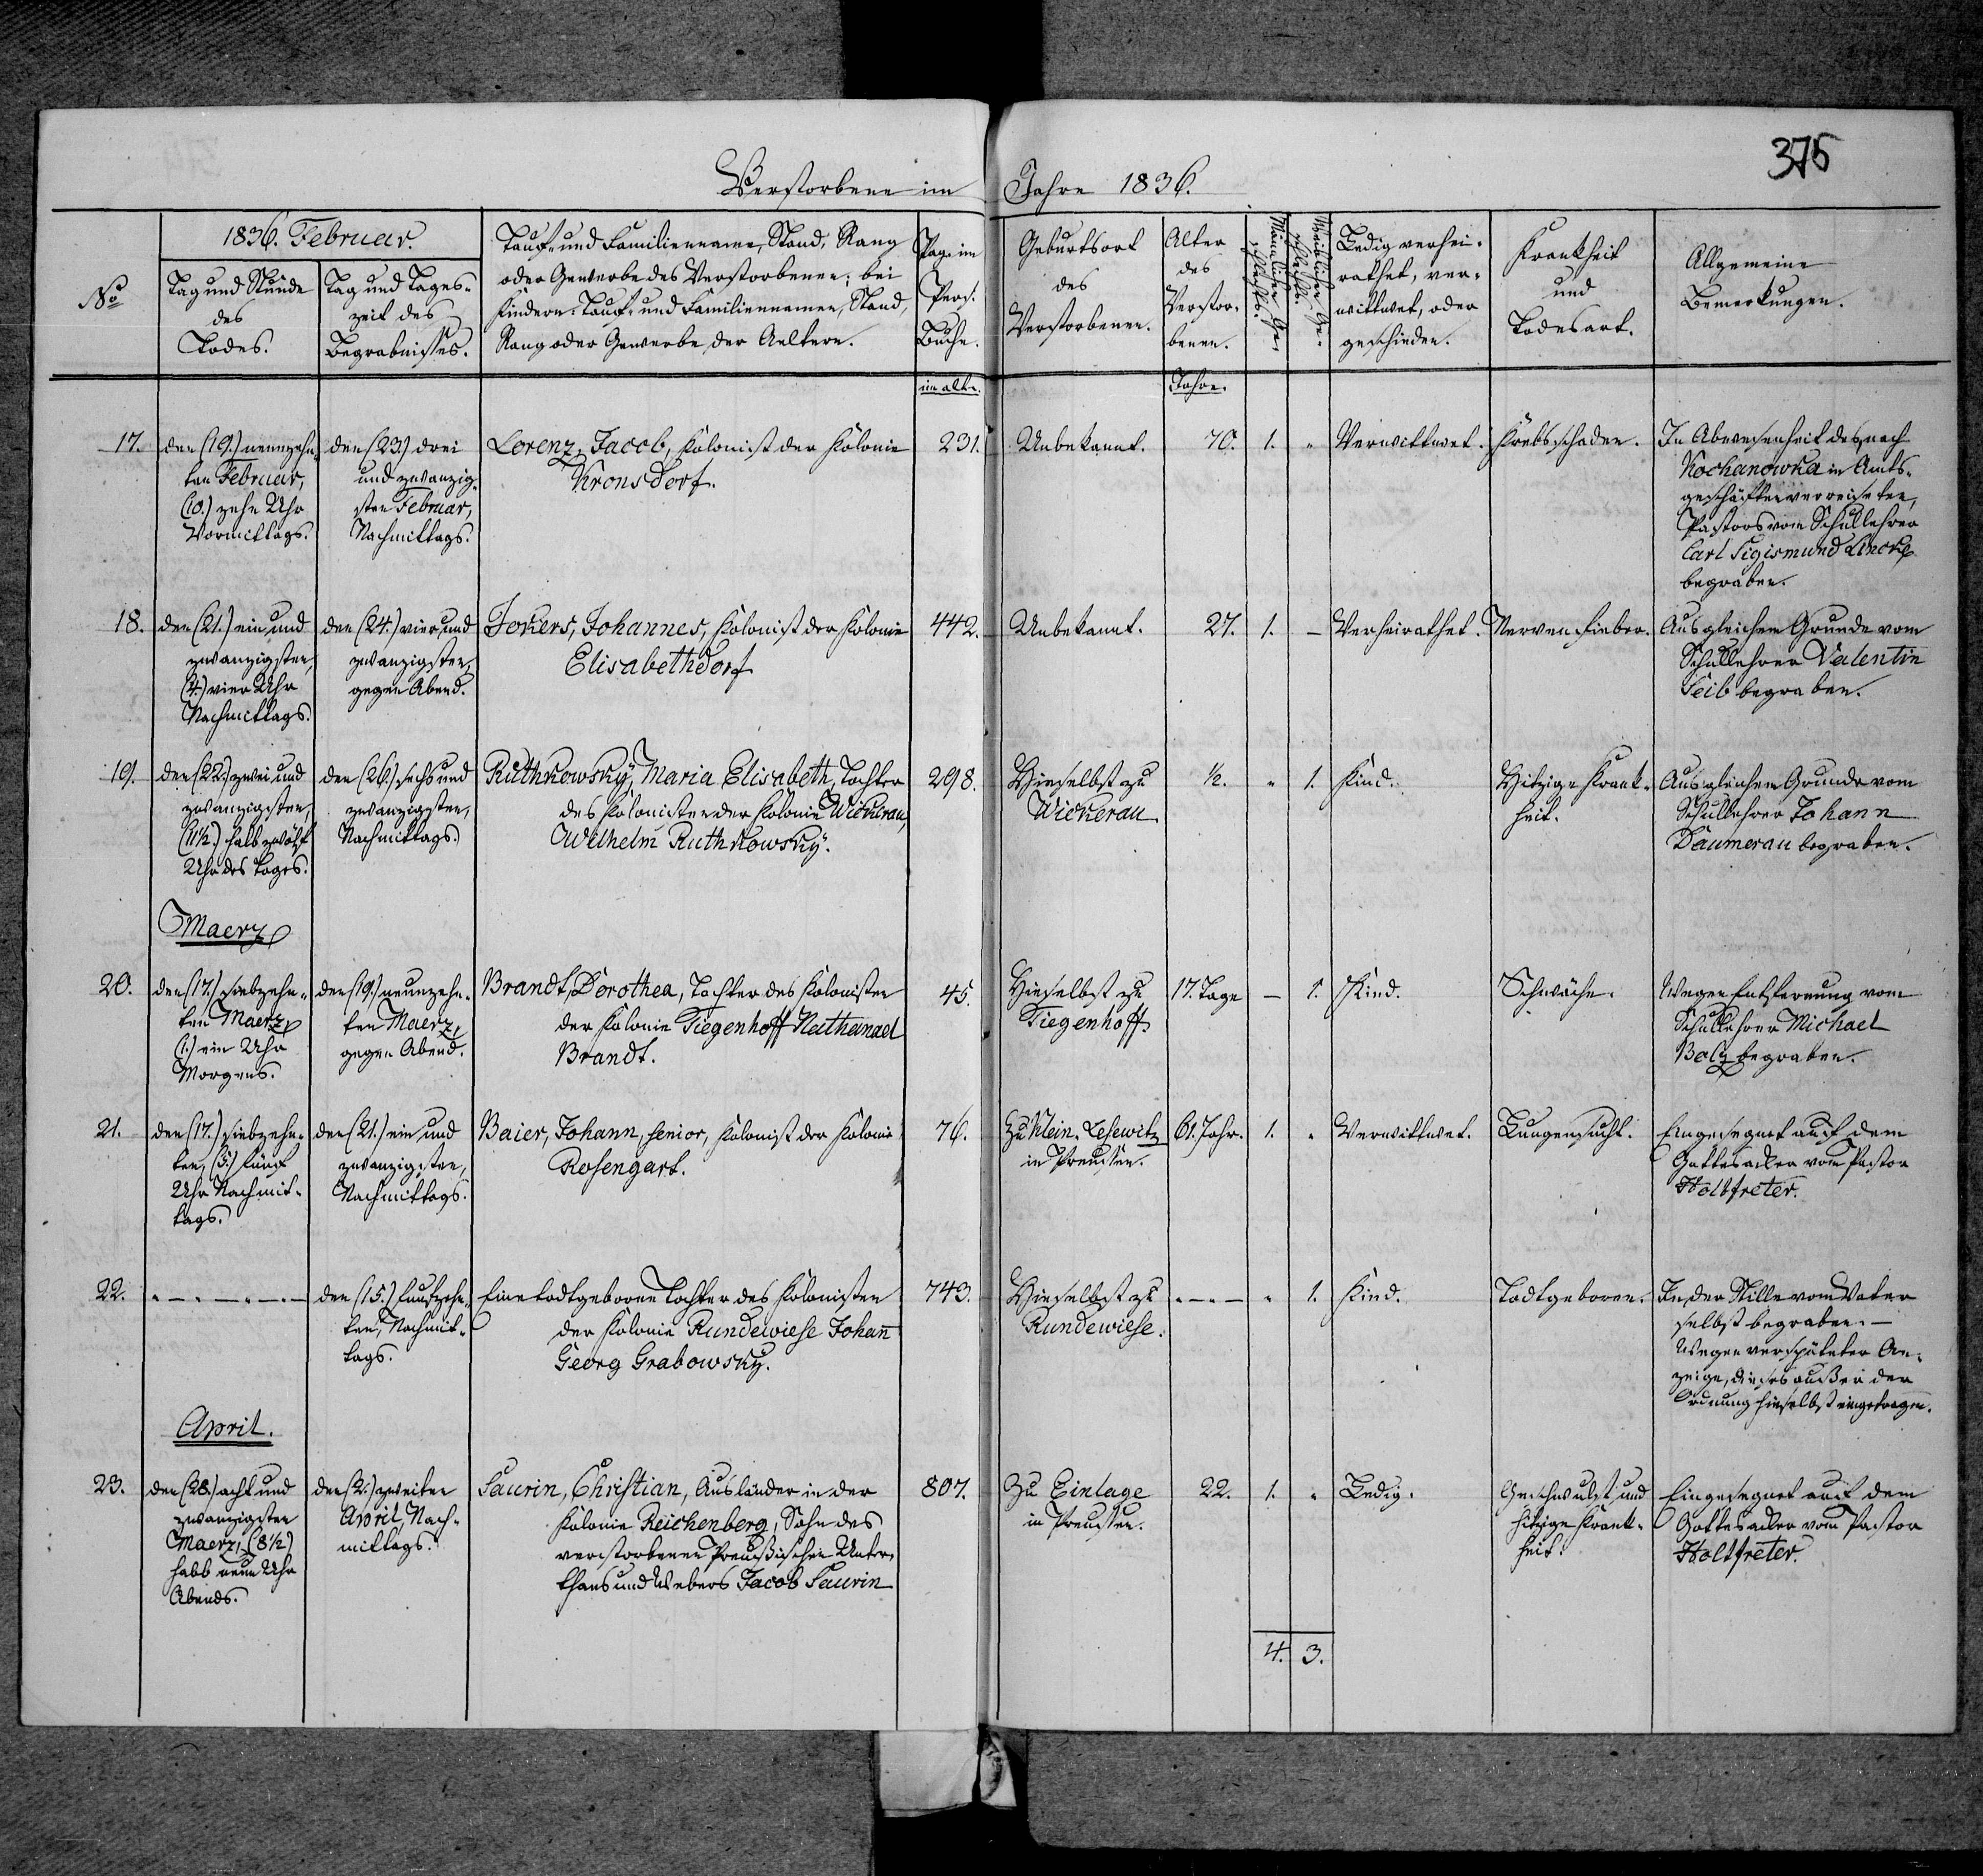 375
Verstorbene im Jahre 1836.
No
1836. Februar.
Tag und Stunde
des
Todes.
Tag und Tages-
zeit des
Begräbnisses.
Tauf- und Familienname, Stand, Rang
oder Gewerbe des Verstorbenen; bei
Kindern: Tauf- und Familiennamen, Stand,
Rang oder Gewerbe der Aeltern.
Pag. im
Pers.
Buche.
Geburtsort
des
Verstorbenen.
Alter
des
Verstor-
benen.
Männlichen Ge-
schlechts.
Weiblichen Ge-
schlechts.
Ledig verhei-
rathet, ver-
wittwet, oder
geschieden.
Krankheit
und
Todesart.
Allgemeine
Bemerkungen.
im alten.
Jahre.
17.
den (19.) neunzehn-
ten Februar,
(10.) zehn Uhr
Vormittags.
den (23.) drei
und zwanzig-
sten Februar,
Nachmittags.
Lorenz, Jacob, Kolonist der Kolonie
Kronsdorf.
231.
Unbekannt.
70.
1.
"
Verwittwet.
Krebsschaden.
In Abwesenheit des nach
Kochanowka in Amts-
geschäften verreiseten,
Pastors vom Schullehrer
Carl Sigismund Lincke
begraben.
18.
den (21.) ein und
zwanzigsten,
(4.) vier Uhr
Nachmittags.
den (24.) vier und
zwanzigsten,
gegen Abend.
Jokers, Johannes, Kolonist der Kolonie
Elisabethdorf
442.
Unbekannt.
27.
1.
–
Verheirathet.
Nervenfieber.
Aus gleichem Grunde vom
Schullehrer Valentin
Seib begraben.
19.
den (22.) zwei und
zwanzigsten,
(11½.) halb zwölf
Uhr des Tages.
den (26.) sechs und
zwanzigsten,
Nachmittags.
Ruthkowsky, Maria Elisabeth, Tochter
des Kolonisten der Kolonie Wickerau,
Wilhelm Ruthkowsky.
298.
Hieselbst zu
Wickerau
½.
"
1.
Kind.
Hitzige Krank-
heit.
Aus gleichem Grunde vom
Schullehrer Johann
Daumerau begraben.
Maerz
20.
den (17.) siebzehn-
ten Maerz,
(1.) ein Uhr
Morgens.
den (19.) neunzehn-
ten Maerz,
gegen Abend.
Brandt, Dorothea, Tochter des Kolonisten
der Kolonie Tiegenhoff Nathanael
Brandt.
45.
Hieselbst zu
Tiegenhoff.
17. Tage
–
1.
Kind.
Schwäche.
Wegen Entfernung vom
Schullehrer Michael
Bolz begraben.
21.
den (17.) siebzehn-
ten, (5.) fünf
Uhr Nachmit-
tags.
den (21.) ein und
zwanzigsten,
Nachmittags.
Baier, Johann, senior, Kolonist der Kolonie
Rosengart.
76.
Zu Klein-Lesewitz
in Preussen.
61. Jahr.
1.
"
Verwittwet.
Lungensucht.
Eingesegnet auf dem
Gottesacker vom Pastor
Holtfreter.
22.
den (15.) funfzehn-
ten, Nachmit-
tags.
Eine todtgeborene Tochter des Kolonisten
der Kolonie Rundewiese Johan̄
Georg Grabowsky.
743.
Hieselbst zu
Rundewiese.
"
1.
Kind.
Todtgeboren.
In der Stille vom Vater
selbst begraben. –
Wegen verspäteter An-
zeige, dieses außer der
Ordnung hieselbst eingetragen.
April.
23.
den (28.) acht und
zwanzigsten
Maerz, (8½)
halb neun Uhr
Abends.
den (2.) zweiten
April, Nach-
mittags.
Saurin, Christian, Ausländer in der
Kolonie Reichenberg, Sohn des
verstorbenen Preußischen Unter-
thans und Webers Jacob Saurin
807.
Zu Einlage
in Preussen.
22.
1.
"
Ledig.
Geschwulst und
hitzige Krank-
heit.
Eingesegnet auf dem
Gottesacker vom Pastor
Holtfreter.
4.
3.